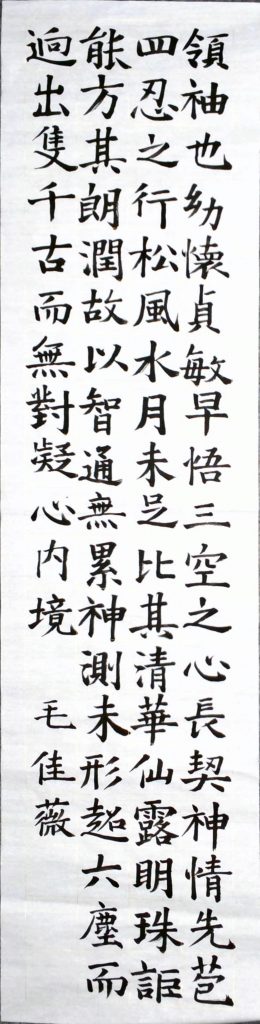 領袖也幼懷貞敏早悟三空之心長契神情先苞
四忍之行松風水月未足比其清華仙露明珠詎
能方其朗潤故以智通無累神測未形超六塵而
逈出隻千古而無對凝心內境 毛佳薇